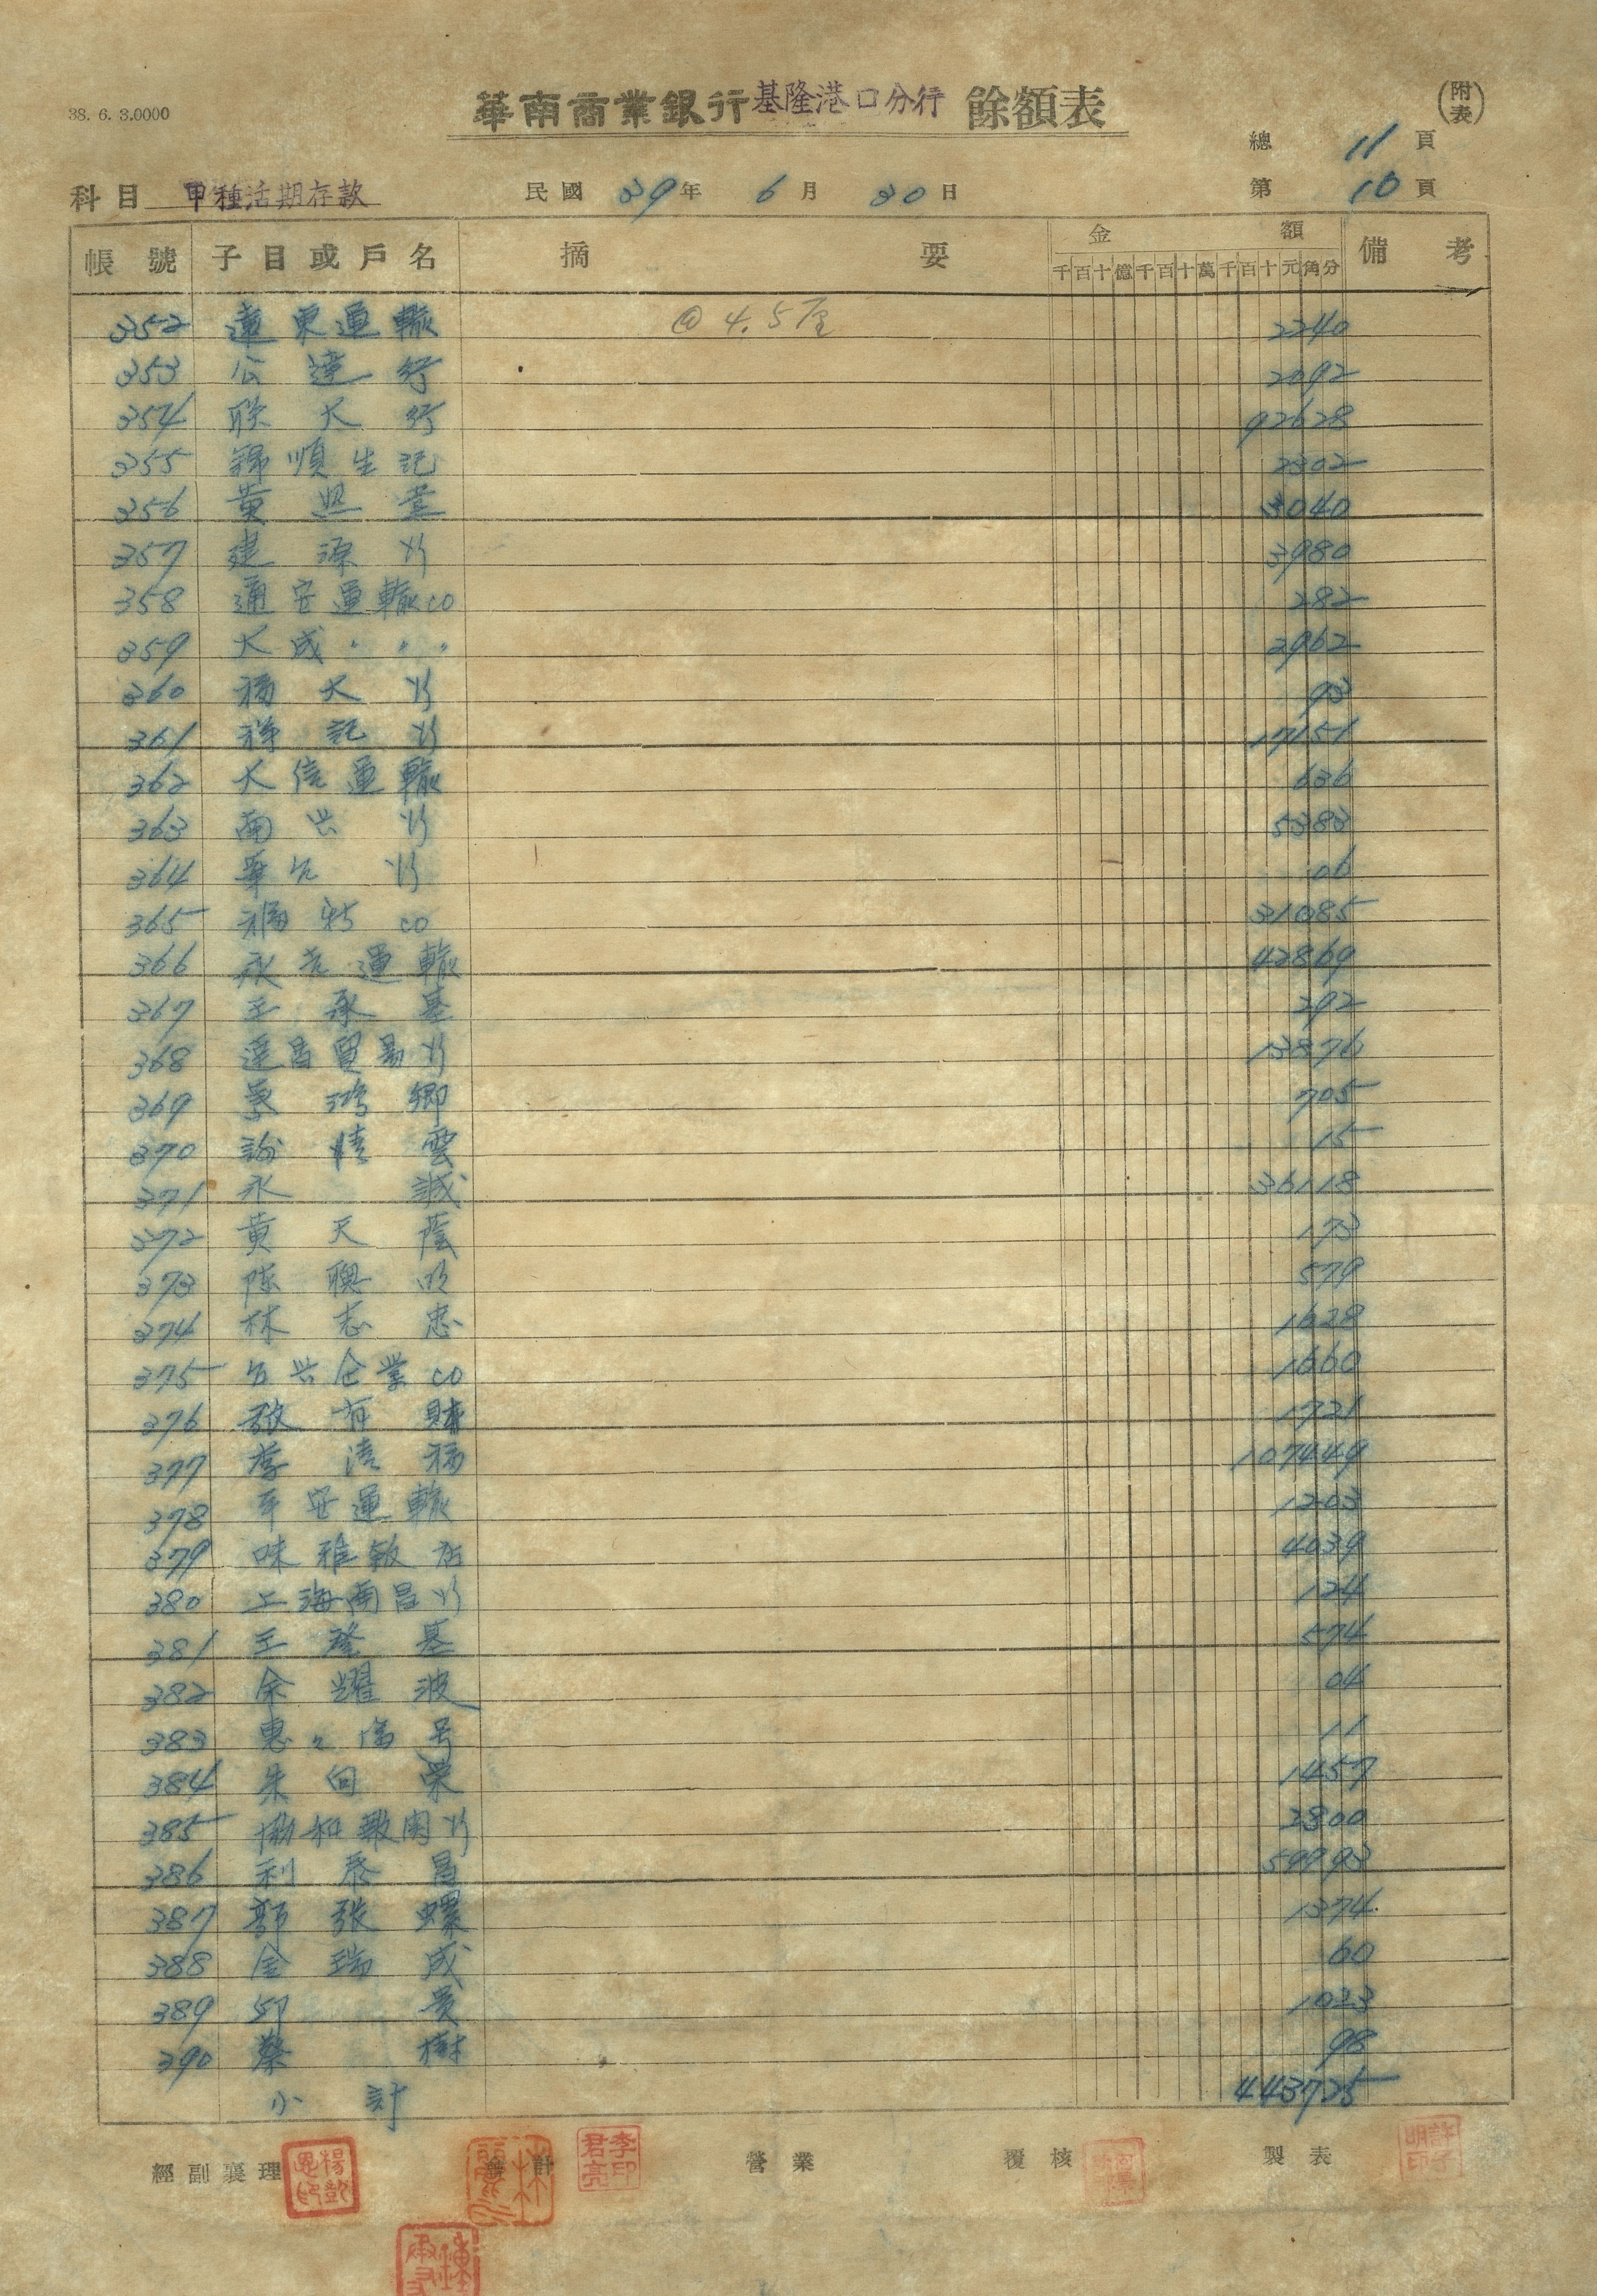 38. 6. 3.0000
華南商業銀行基隆港口分行 餘額表
(附表)
總 11 頁
科目 甲種活期存款 民國 39 年 6 月 30 日 第 10 頁
帳號 子目或戶名 摘要 金額 備考
千百十億千百十萬千百十元角分
352 遠東運輸 @ 4.5厘 2240
353 公達行 2092
354 聯大行 92628
355 錦順生記 2302
356 黃照堂 3040
357 建源行 3980
358 通安運輸co 282
359 大成〃〃〃 2962
360 福大行 93
361 祥記行 17151
362 大信運輸 636
363 南興行 5383
364 華台行 06
365 福新co 31085
366 永光運輸 42869
367 王承基 292
368 遠昌貿易行 13876
369 鴻卿 705
370 雲 15
371 永誠 36118
372 黃天蔭 173
373 陳聰明 579
374 林志忠 1628
375 台兴企業co 1660
376 有財 1721
377 李清福 107449
378 平安運輸 1203
379 味雅飯店 4039
380 上海南昌行 124
381 王隆基 574
382 余耀波 04
383 惠 号 11
384 朱向榮 1457
385 協和報関行 2800
386 利泰昌 59993
387 郭張螺 1374
388 金瑞成 60
389 邱貴 1023
390 蔡樹 98
小計 443725
經副襄理 會計 李君亮印 營業 覆核 製表